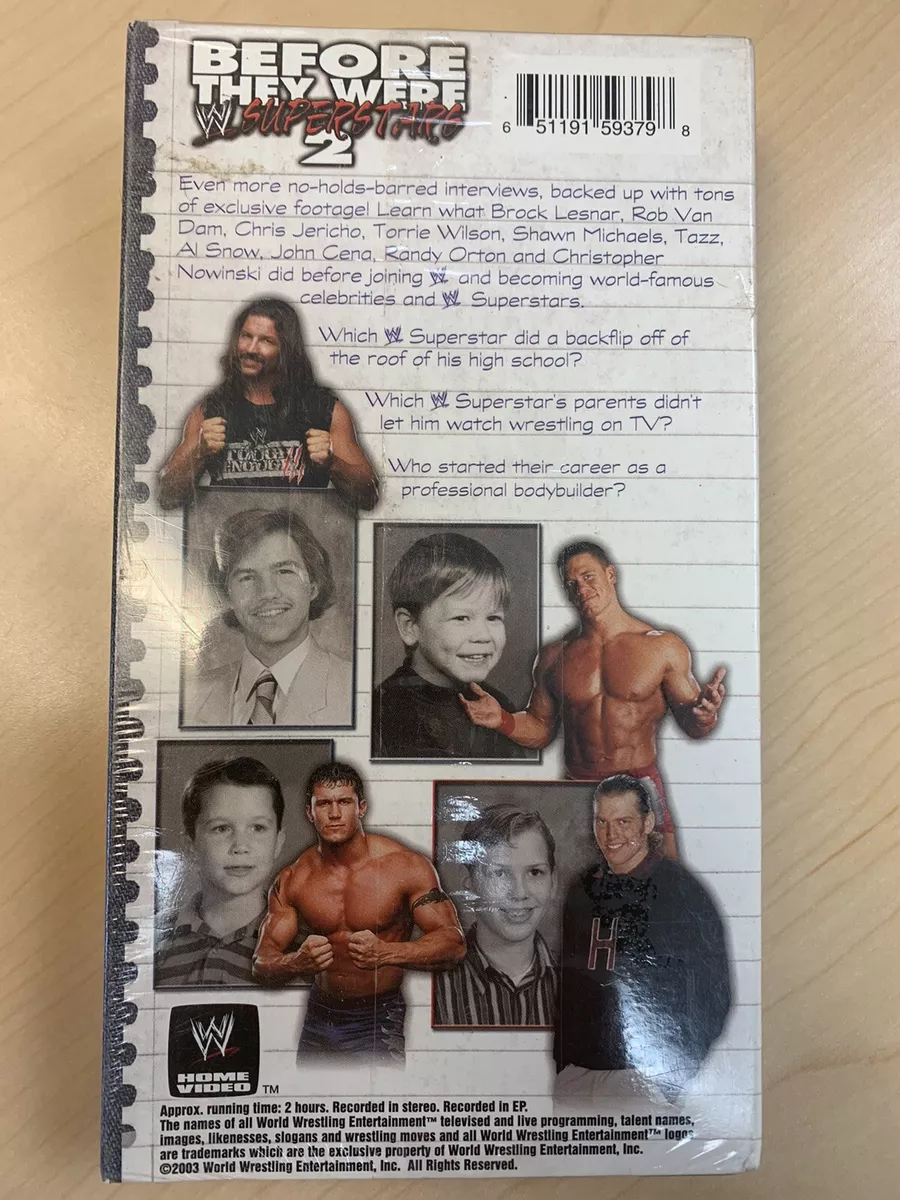 BEFORE
THEY WERE
W SUPERSTARS
2
6 51191 59379 8
Even more no-holds-barred interviews, backed up with tons
of exclusive footage! Learn what Brock Lesnar, Rob Van
Dam, Chris Jericho, Torrie Wilson, Shawn Michaels, Tazz,
Al Snow, John Cena, Randy Orton and Christopher
Nowinski did before joining W and becoming world-famous
celebrities and W Superstars.
Which W Superstar did a backflip off of
the roof of his high school?
Which W Superstar's parents didn't
let him watch wrestling on TV?
Who started their career as a
professional bodybuilder?
TOUGH
ENOUGH
H
W
HOME
VIDEO TM
Approx. running time: 2 hours. Recorded in stereo. Recorded in EP.
The names of all World Wrestling Entertainment™ televised and live programming, talent names,
images, likenesses, slogans and wrestling moves and all World Wrestling Entertainment™ logos
are trademarks which are the exclusive property of World Wrestling Entertainment, Inc.
©2003 World Wrestling Entertainment, Inc. All Rights Reserved.